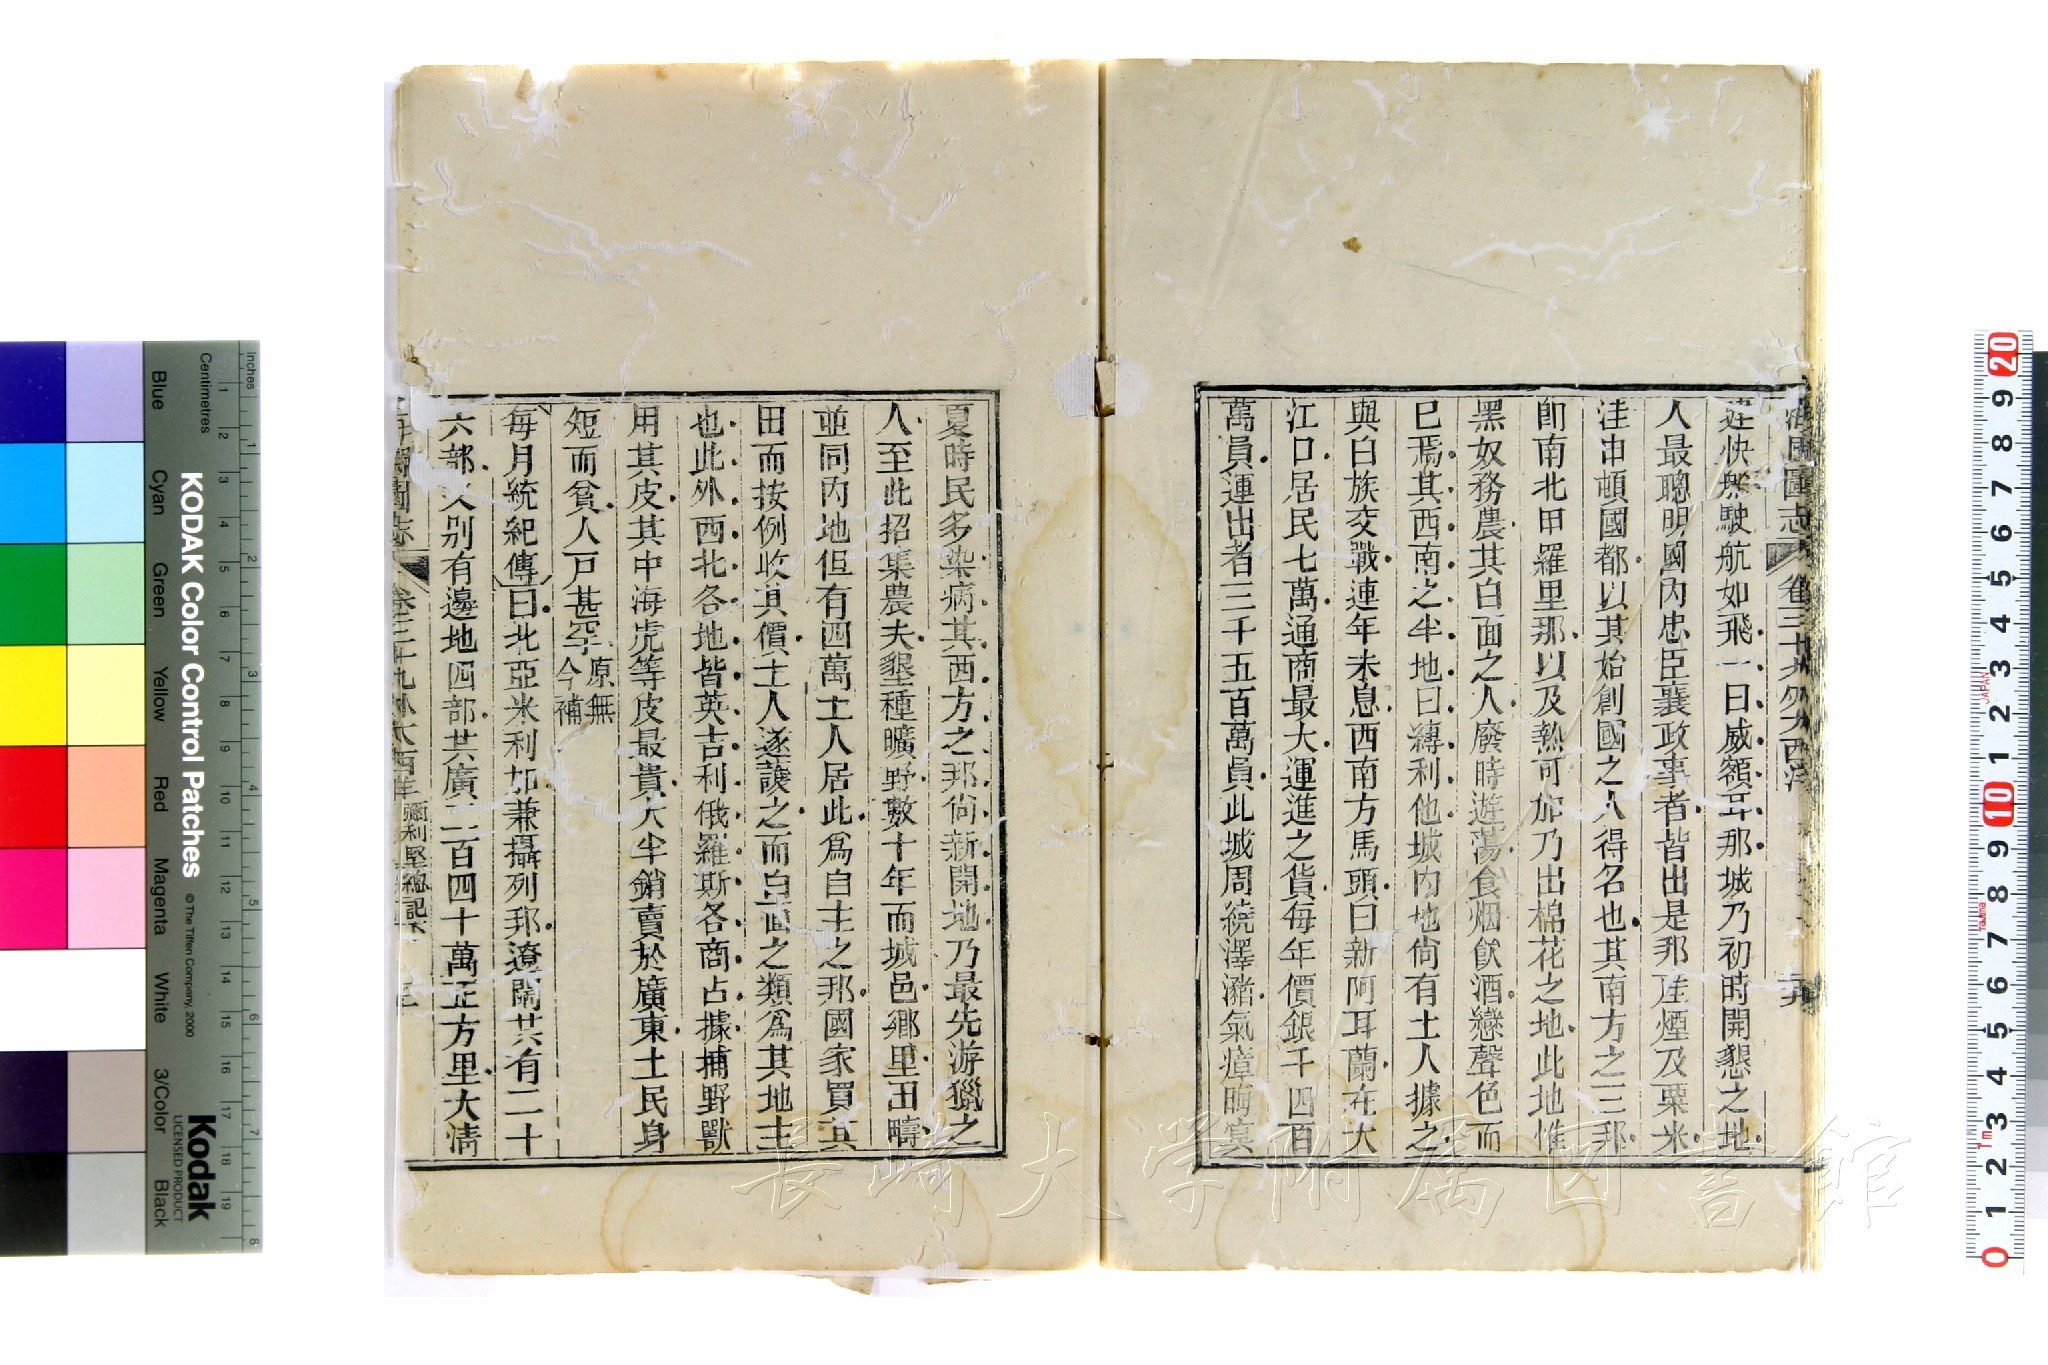 海國圖志 卷三十九 外大西洋
筳快然駛航如飛一曰威額耳那城乃初時開懇之地
人最聰明國內忠臣襄政事者皆出是那產煙及粟米
洼申頓國都以其始創國之人得名也其南方之三那
卽南北甲羅里那以及熱可爾乃出棉花之地此地惟
黑奴務農其白面之人廢時遊蕩食烟飮酒戀聲色而
巳焉其西南之半地曰縳利他城內地尙有土人據之
與白族交戰連年未息西南方馬頭曰新阿耳蘭在大
江口居民七萬通商最大運進之貨每年價銀千四百
萬員運出者三千五百萬員此城周繞澤瀦氣瘴晦冥
夏時民多染病其西方之那尙新開地乃最先游獵之
人至此招集農夫墾種曠野數十年而城邑鄉里田疇
並同內地但有四萬土人居此爲自主之那國家買其
田而按例收其價土人遂護之而白面之類爲其地主
也此外西北各地皆英吉利俄羅斯各商占據捕野獸
用其皮其中海虎等皮最貴大半銷賣於廣東土民身
短而貧人戶甚罕 原無今補
每月統紀傳曰北亞米利加兼攝列邦遼闊共有二十
六部又别有邊地四部共廣二百四十萬正方里大淸
海國圖志 卷三十九 外大西洋 彌利堅總記下
KODAK Color Control Patches
© The Tiffen Company, 2000
Kodak
LICENSED PRODUCT
Inches
Centimetres
Blue Cyan Green Yellow Red Magenta White 3/Color Black
1 2 3 4 5 6 7 8 9 10 11 12 13 14 15 16 17 18 19
1 2 3 4 5 6 7 8
20 9 8 7 6 5 4 3 2 1 10 9 8 7 6 5 4 3 2 1 0
JAPAN
長崎大学附属図書館